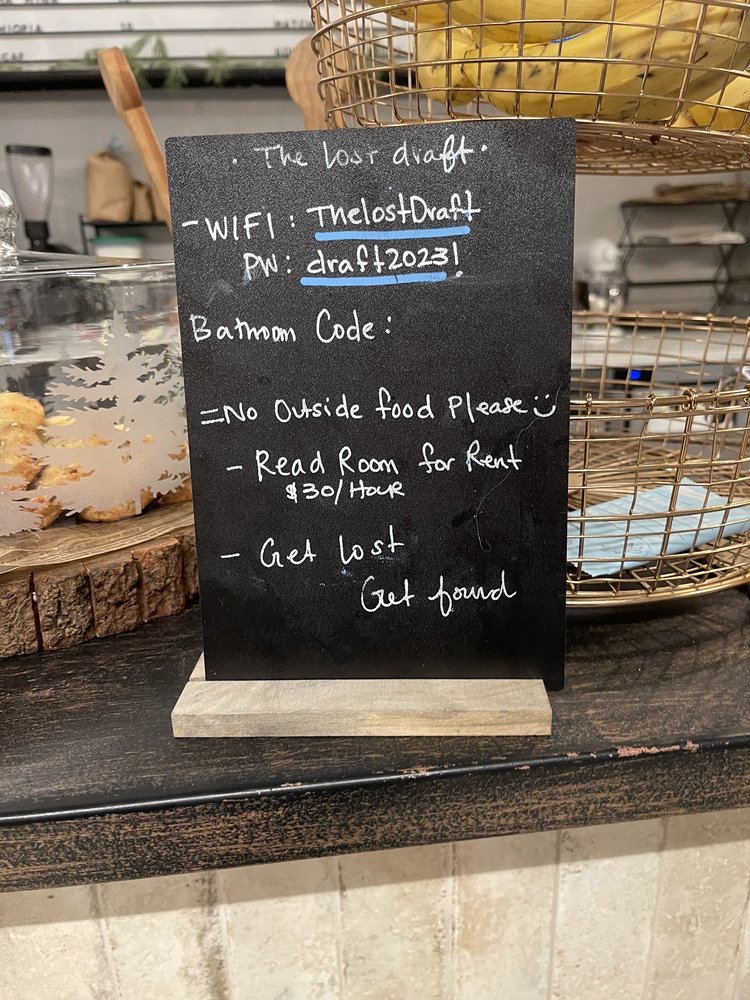 · The lost draft ·
- WIFI : ThelostDraft
PW: draft2023!
Bathroom Code :
=No Outside food Please
- Read Room for Rent
$30/HOUR
- Get lost
Get found